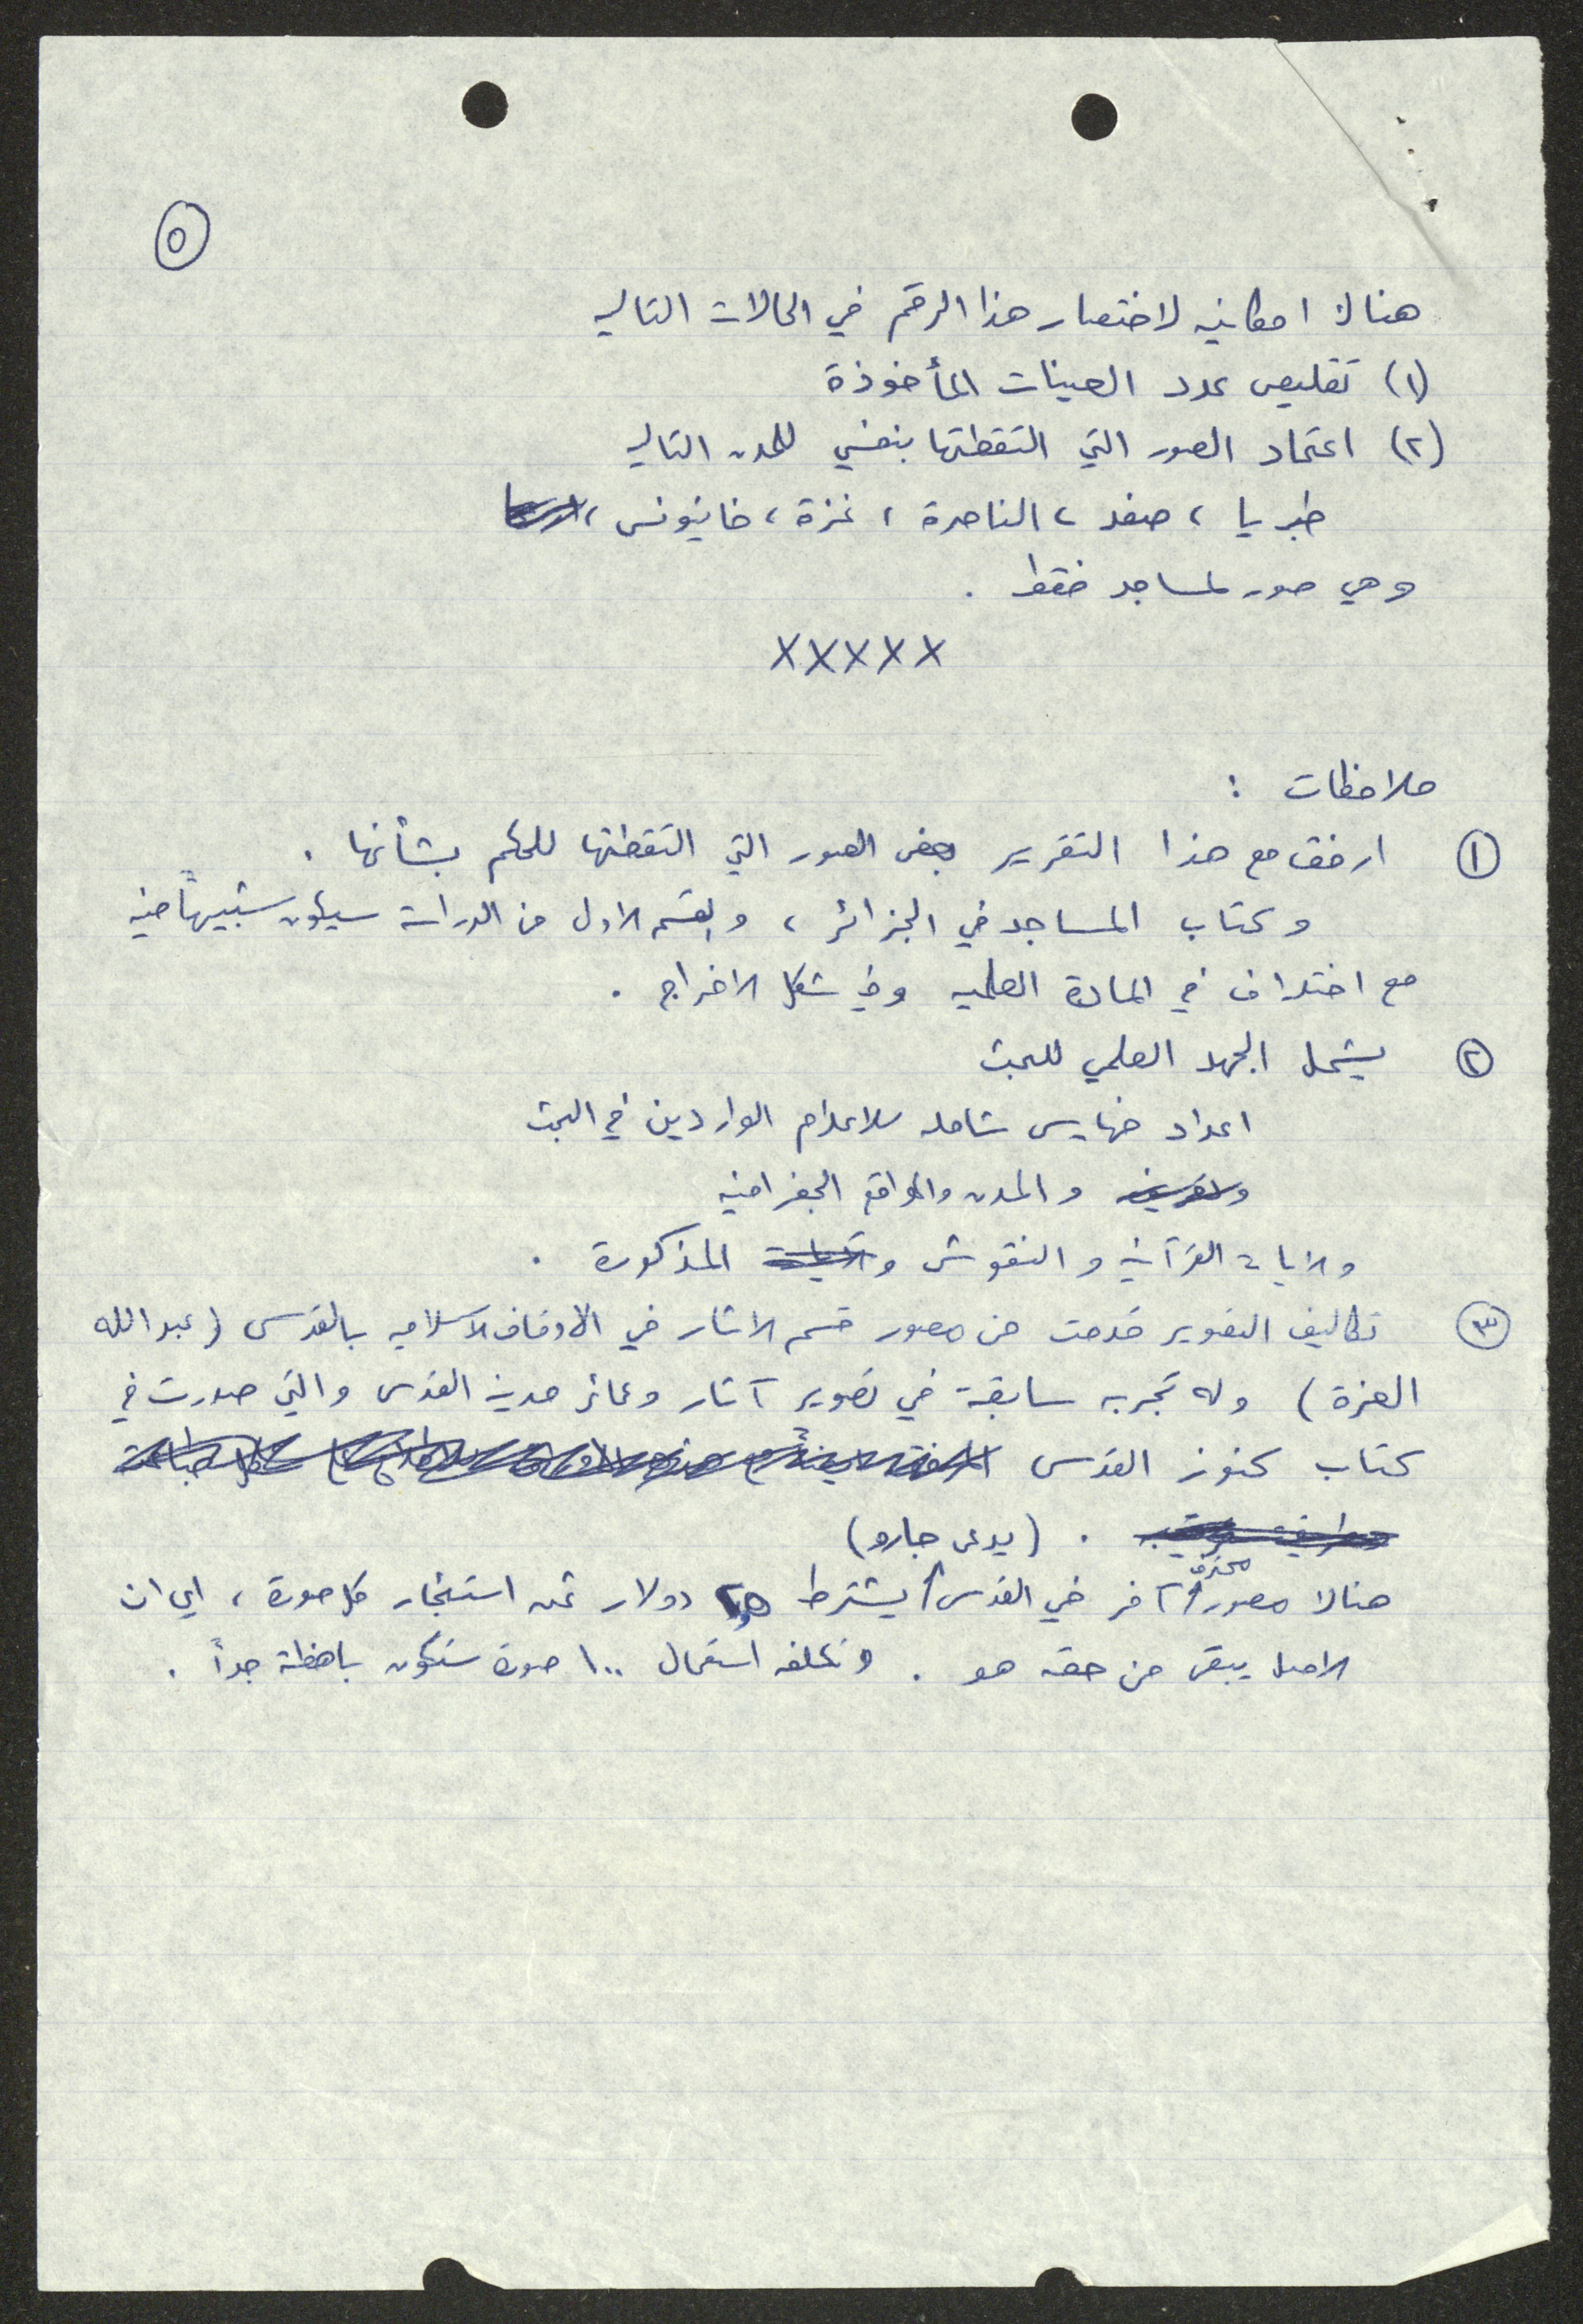 ٥
هنالك امكانيه لاختصار هذا الرقم في الحالات التاليه
(١) تقليص عدد العينات المأخوذة
(٢) اعتماد الصور التي التقطتها بنفسي للمدن التاليه
طبريا ، صفد ، الناصرة ، غزة ، خانيونس ،
وهي صور لمساجد فقط .
XXXXX
ملاحظات :
١ ارفق مع هذا التقرير بعض الصور التي التقطتها للحكم بشأنها .
وكتاب المساجد في الجزائر ، والقسم الاول من الدراسة سيكون شبيهاً فيه
مع اختلاف في المادة العلميه وفي شكل الاخراج .
٢ يشمل الجهد العلمي للبحث
اعداد فهارس شامله للاعلام الواردين في البحث
والمدن والمواقع الجغرافيه
والايات القرآنيه والنقوش المذكورة .
٣ تكاليف التصوير قدمت من مصور قسم الاثار في الاوقاف الاسلاميه بالقدس (عبدالله
العزة) وله تجربه سابقة في تصوير آثار وعمائر مدينه القدس والتي صدرت في
كتاب كنوز القدس
. (يدعى جارو)
هنالك مصور محترف آخر في القدس يشترط ٢٥ دولار ثمن استئجار كل صورة ، اي ان
الاصل يبقى من حقه هو . وتكلفه استعمال ١٠٠ صورة ستكون باهظة جداً .